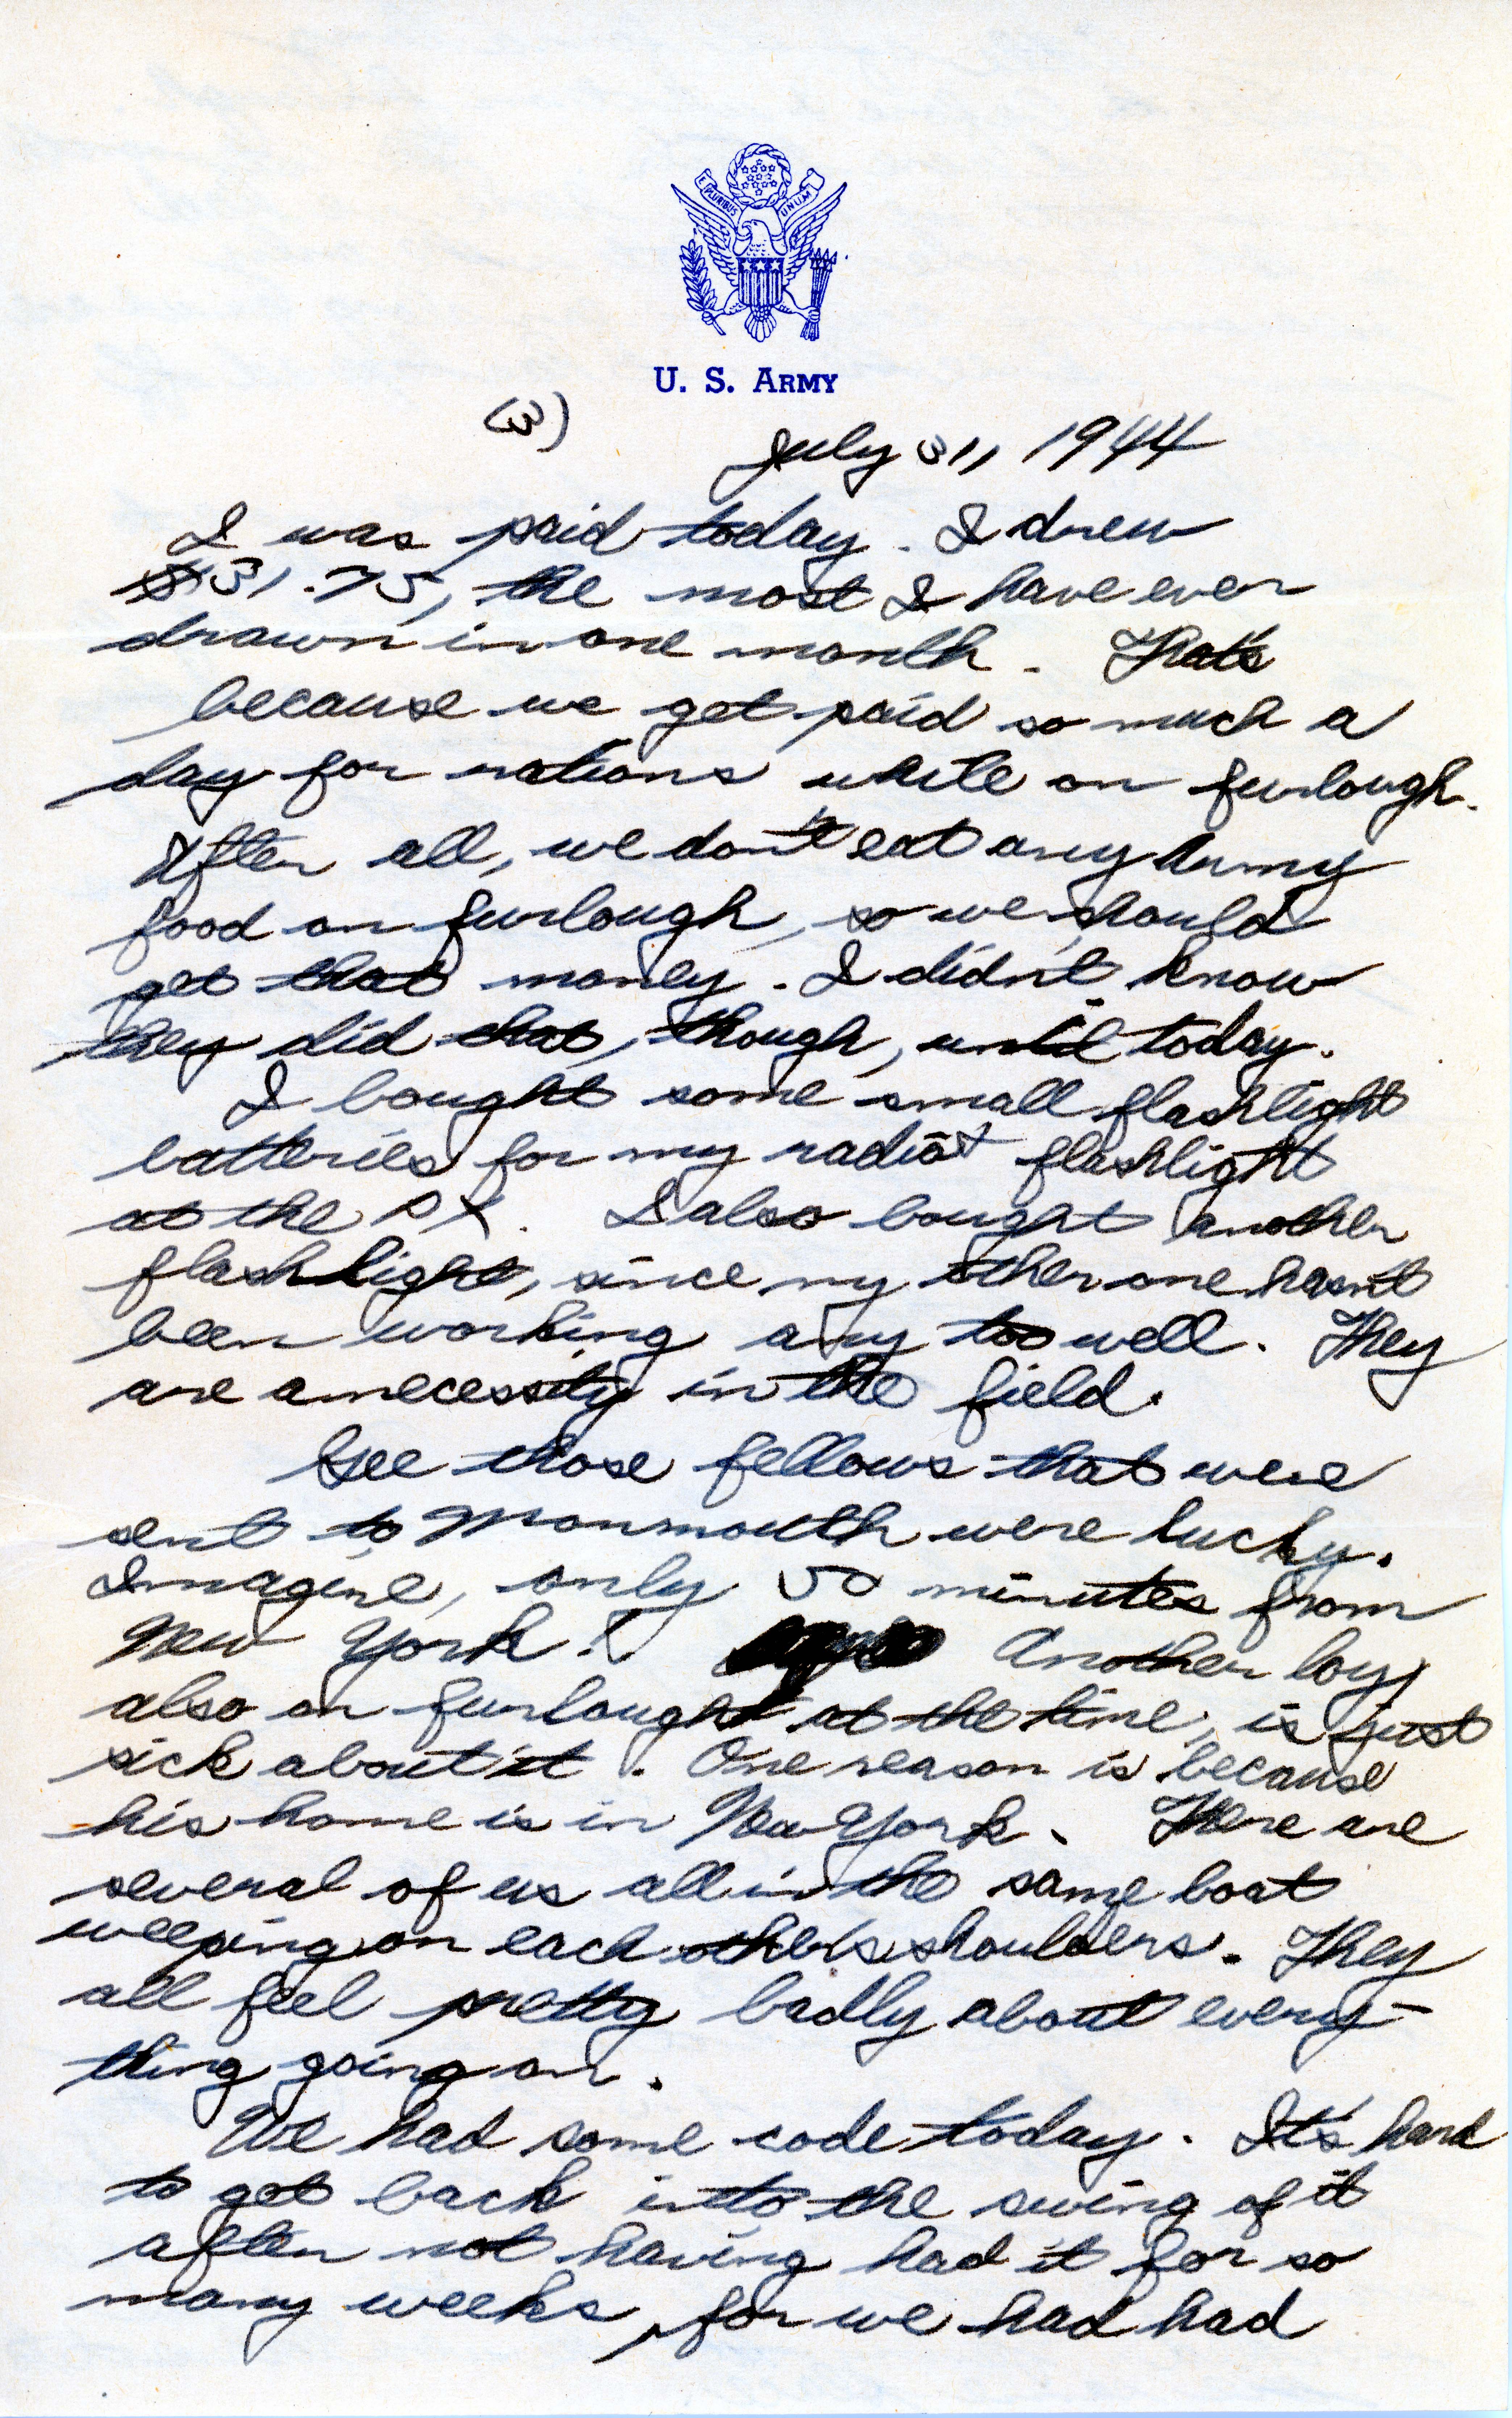 E PLURIBUS UNUM
U. S. ARMY
(3)
July 31, 1944
I was paid today. I drew
$31.75, the most I have ever
drawn in one month. That's
because we get paid so much a
day for rations while on furlough.
After all, we don't eat any Army
food on furlough, so we should
get that money. I didn't know
they did that, though, until today.
I bought some small flashlight
batteries for my flashlight
at the PX. I also bought another
flashlight, since my other one hasn't
been working any too well. They
are a necessity in the field.
Gee those fellows that were
sent to Monmouth were lucky.
Imagine, only 50 minutes from
New York! Another boy,
also on furlough at the time, is just
sick about it. One reason is because
his home is in New York. There are
several of us all in the same boat
weeping on each other's shoulders. They
all feel pretty badly about every-
thing going on.
We had some code today. It's hard
to get back into the swing of it
after not having had it for so
many weeks, for we had had